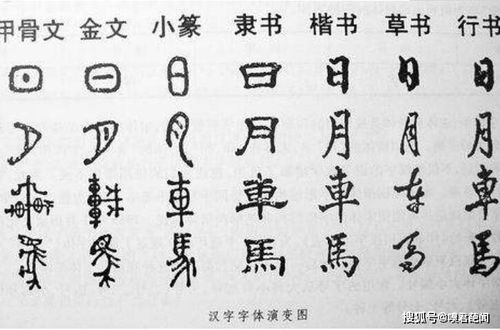 甲骨文 金文 小篆 隶书 楷书 草书 行书
日 日 日 日 日 日 日
月 月 月 月 月 月 月
車 車 車 車 車 车 車
馬 馬 馬 馬 馬 马 馬
汉字字体演变图
搜狐号@嗅香绝闻